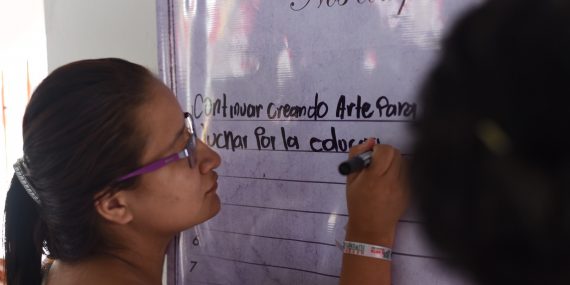 Continuar creando Arte Para
luchar Por la
6
7